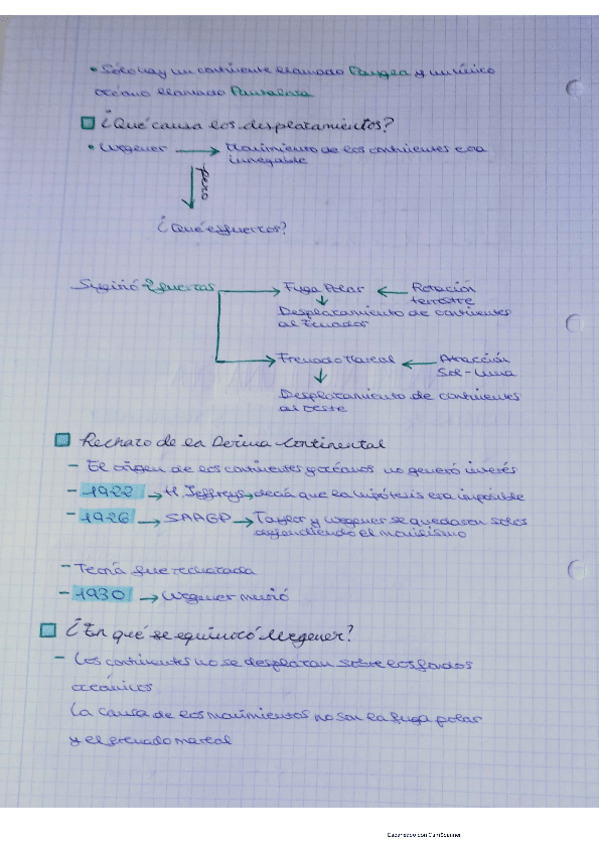 • Sólo hay un continente llamado Pangea y un único
océano llamado Pantalasa
¿Qué causa los desplazamientos?
• Wegener → Movimiento de los continentes era
innegable
pero
¿Qué esfuerzos?
Sugirió 2 fuerzas → Fuga Polar ← Rotación
terrestre
Desplazamiento de continentes
al Ecuador
Frenado Mareal ← Atracción
Sol-Luna
Desplazamiento de continentes
al Oeste
Rechazo de la Deriva Continental
- El origen de los continentes y océanos no generó interés
- 1922 → H. Jeffreys → decía que la hipótesis era imposible
- 1926 → SAAGP → Taylor y Wegener se quedaron solos
defendiendo el movilismo
- Teoría fue rechazada
- 1930 → Wegener murió
¿En qué se equivocó Wegener?
- Los continentes no se desplazan sobre los fondos
oceánicos
La causa de los movimientos no son la fuga polar
y el frenado mareal
Escaneado con CamScanner